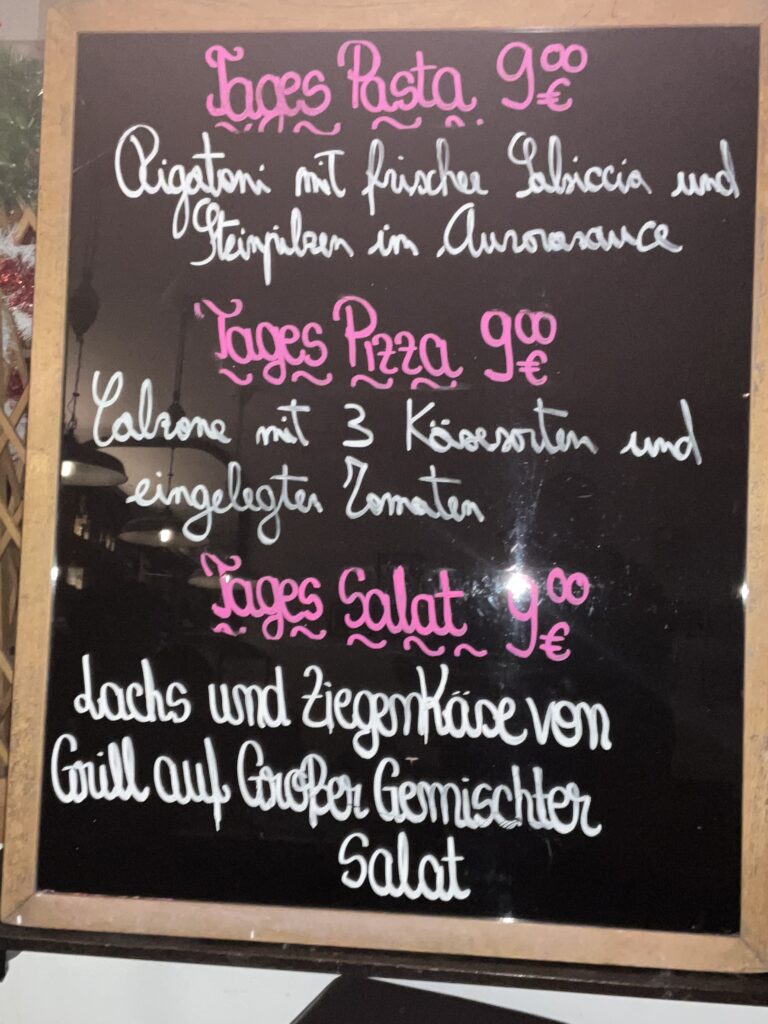 Tages Pasta 9,00 €
Rigatoni mit frischer Salsiccia und
Steinpilzen in Aurorasauce
Tages Pizza 9,00 €
Calzone mit 3 Käsesorten und
eingelegter Tomaten
Tages Salat 9,00 €
Lachs und ZiegenKäse von
Grill auf Großer Gemischter
Salat